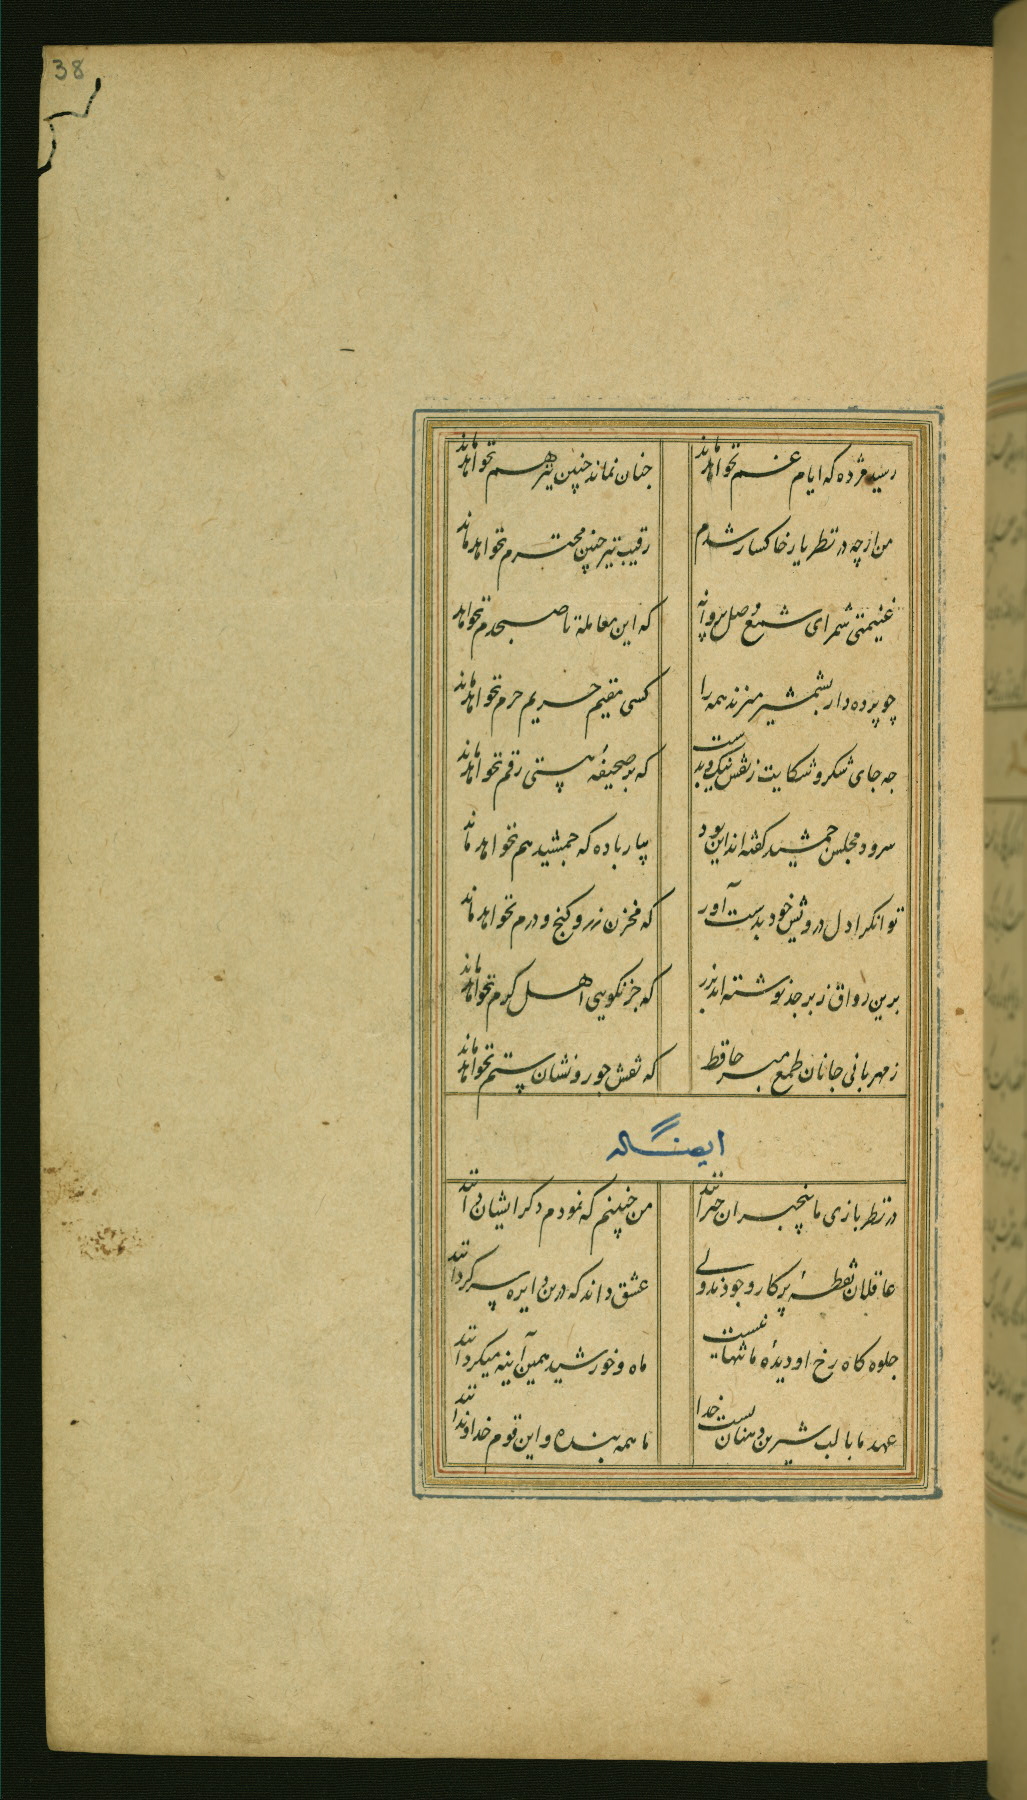 38
رسید مژده که ایام غم نخواهد ماند
چنان نماند چنین نیز هم نخواهد ماند
من ارچه در نظر یار خاکسار شدم
رقیب نیز چنین محترم نخواهد ماند
غنیمتی شمر ای شمع وصل پروانه
که این معامله تا صبحدم نخواهد
چو پرده دار بشمشیر میزند همه را
کسی مقیم حریم حرم نخواهد ماند
چه جای شکر و شکایت ز نقش نیک و بدست
که بر صحیفهٔ هستی رقم نخواهد ماند
سرود مجلس جمشید گفته‌اند این بود
بیار باده که جمشید هم نخواهد ماند
توانگرا دل درویش خود بدست آور
که مخزن زر و گنج و درم نخواهد ماند
برین رواق زبرجد نوشته‌اند بزر
که جز نکویی اهل کرم نخواهد ماند
ز مهربانی جانان طمع مبر حافظ
که نقش جور و نشان ستم نخواهد ماند
ایضاً له
در نظربازی ما بیخبران حیرانند
من چنینم که نمودم دگر ایشان دانند
عاقلان نقطهٔ پرکار وجودند ولی
عشق داند که درین دایره سرگردانند
جلوه گاه رخ او دیدهٔ ما تنها نیست
ماه و خورشید همین آینه میگردانند
عهد ما با لب شیرین دهنان بست خدا
ما همه بنده و این قوم خداوندانند